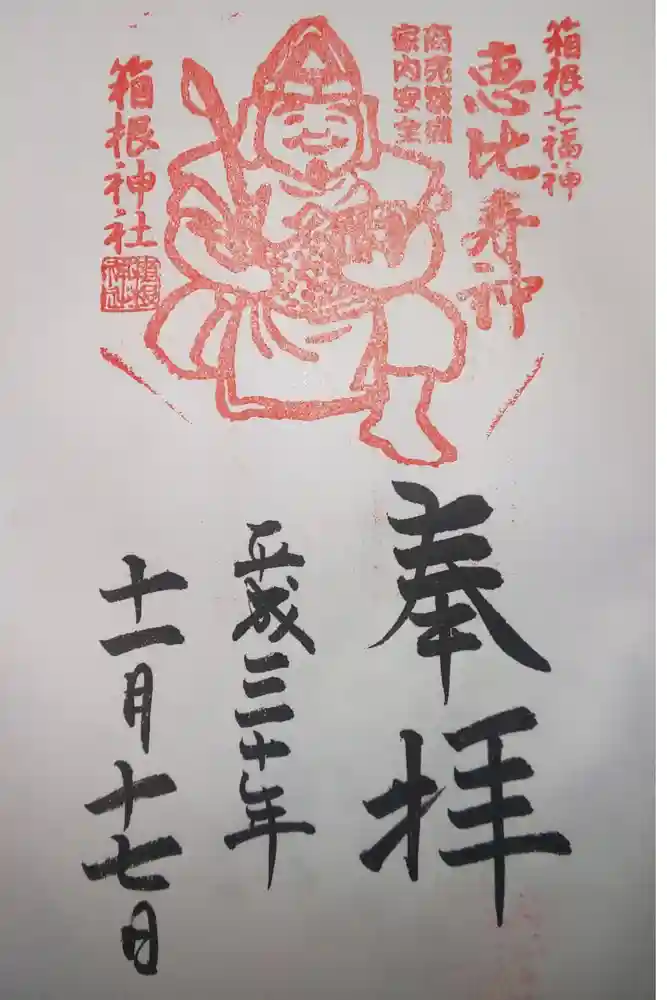 箱根七福神
恵比寿神
商売繁盛
家内安全
箱根神社
奉拝
平成三十年
十一月十七日